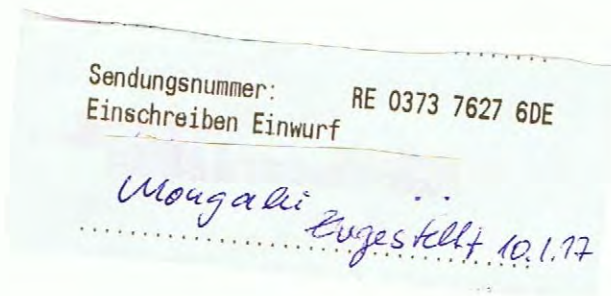 Sendungsnummer: RE 0373 7627 6DE
Einschreiben Einwurf
zugestellt 10.1.17